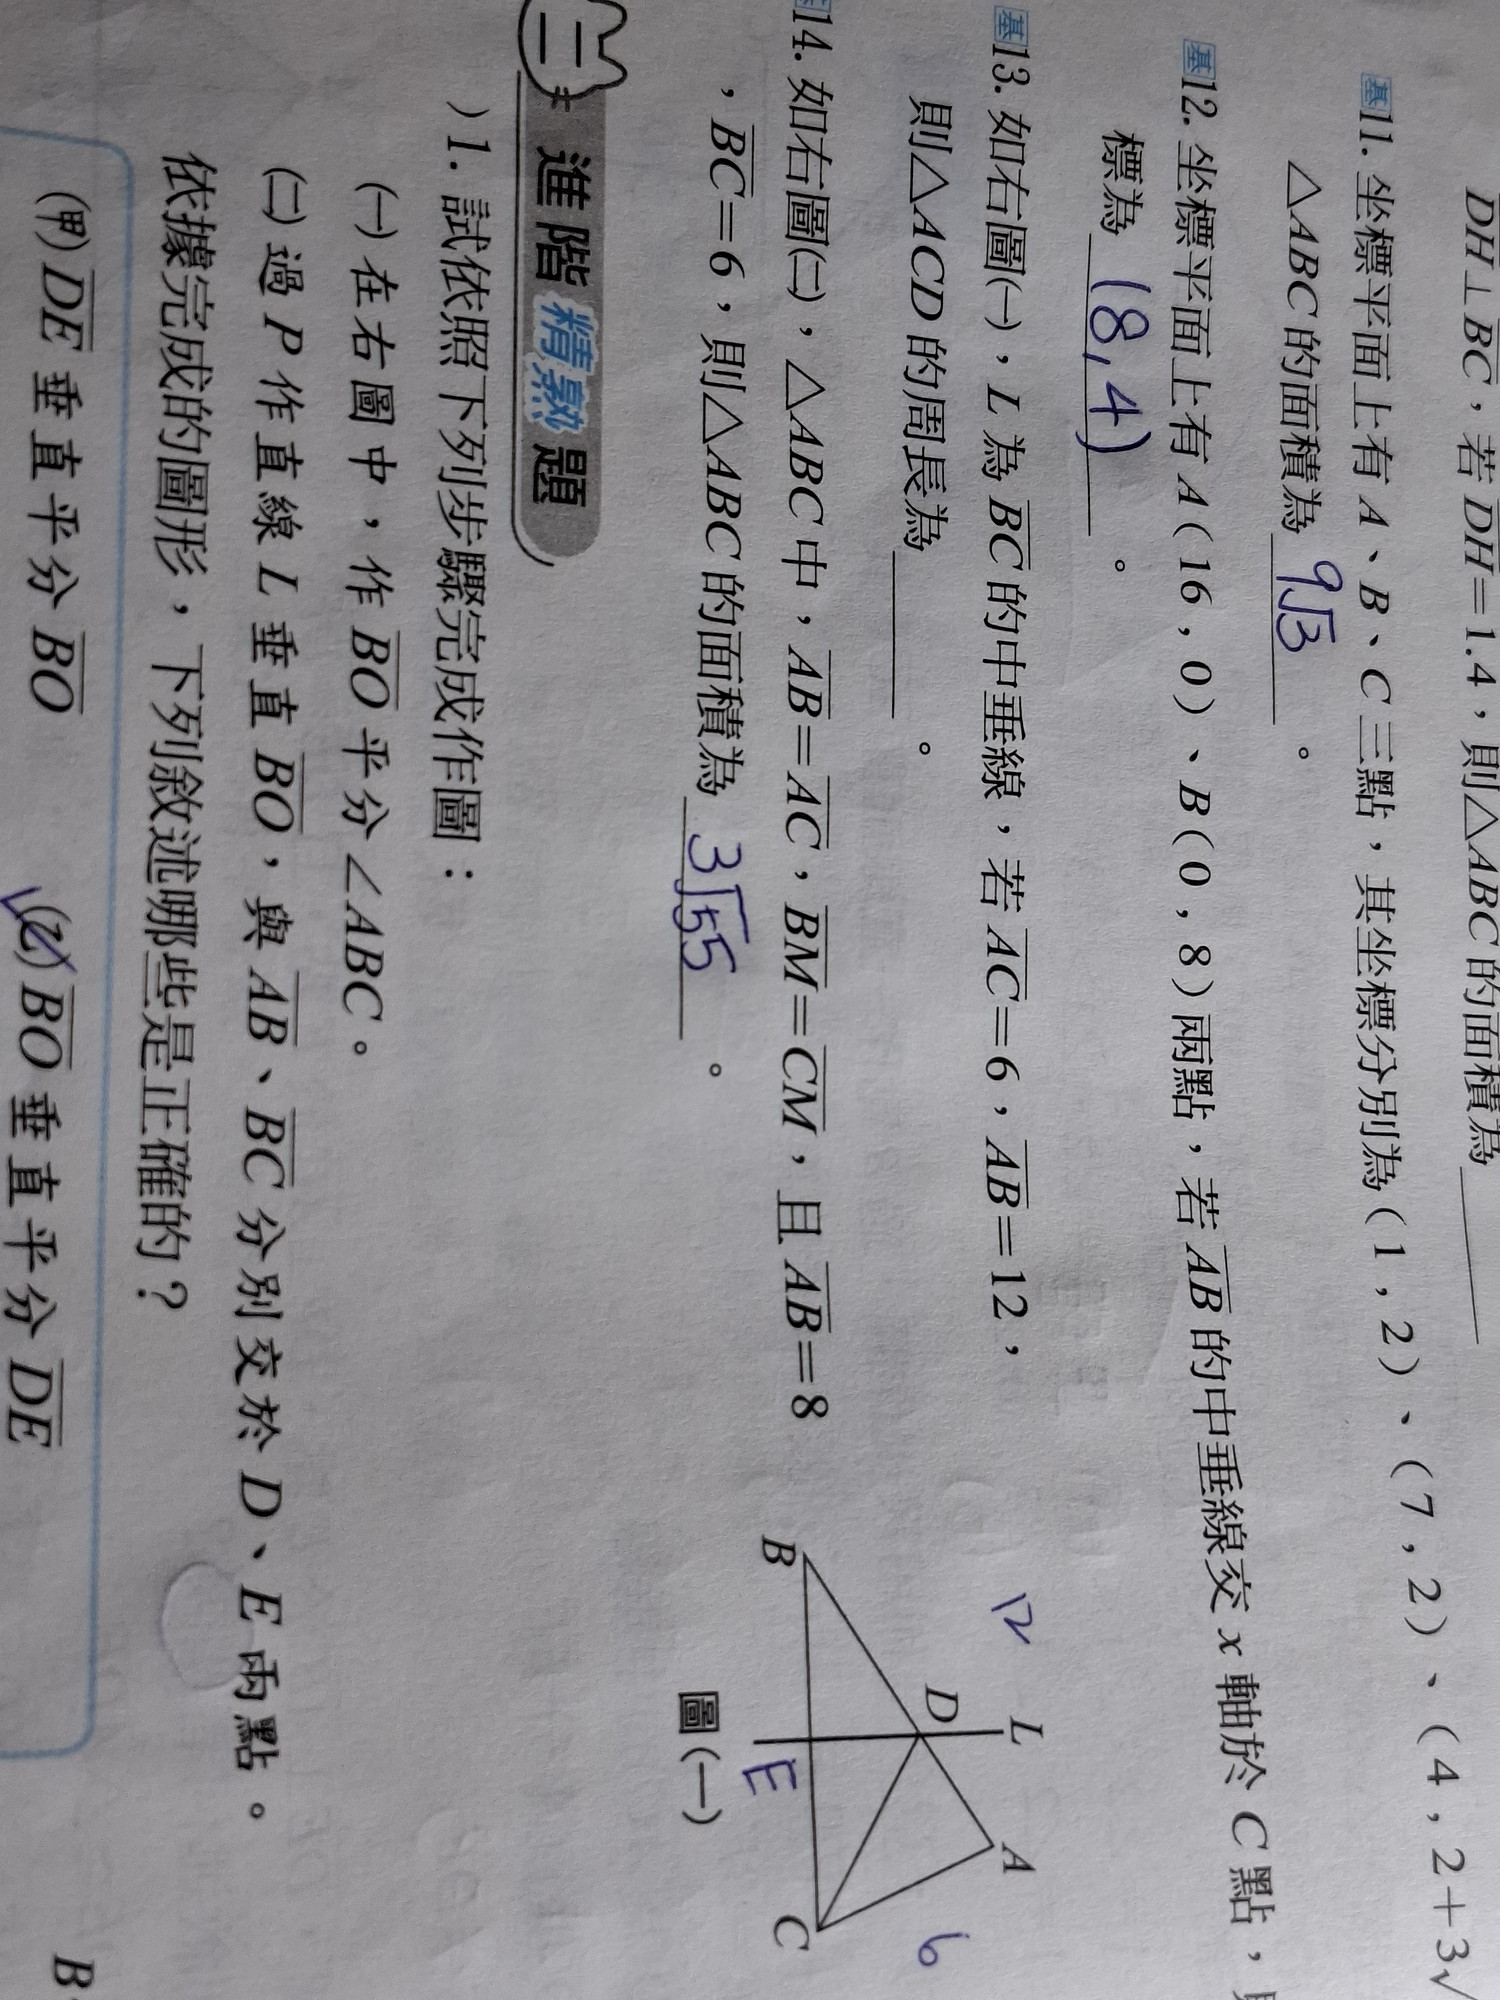 DH⊥BC，若DH=1.4，則△ABC的面積為
基11. 坐標平面上有A、B、C三點，其坐標分別為(1，2)、(7，2)、(4，2+3√
△ABC的面積為 9√3 。
基12. 坐標平面上有A(16，0)、B(0，8)兩點，若AB的中垂線交x軸於C點，
標為 (8,4) 。
基13. 如右圖(一)，L為BC的中垂線，若AC=6，AB=12，
則△ACD的周長為 。
14. 如右圖(二)，△ABC中，AB=AC，BM=CM，且AB=8
，BC=6，則△ABC的面積為 3√55 。
12
L
D
A
6
B
E
C
圖(一)
二 進階精熟題
)1. 試依照下列步驟完成作圖：
(一)在右圖中，作BO平分∠ABC。
(二)過P作直線L垂直BO，與AB、BC分別交於D、E兩點。
依據完成的圖形，下列敘述哪些是正確的？
(甲)DE垂直平分BO (乙)BO垂直平分DE
B